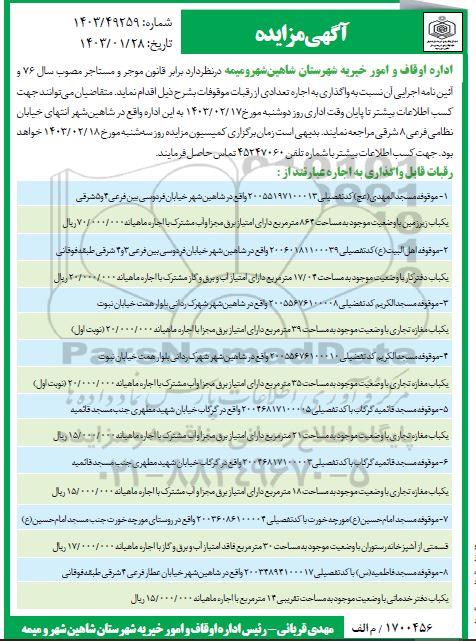 شماره: ۱۴۰۳/۴۹۲۵۹
تاریخ: ۱۴۰۳/۰۱/۲۸
آگهی مزایده
اداره اوقاف و امور خیریه شهرستان شاهین‌شهر و میمه درنظردارد برابر قانون موجر و مستاجر مصوب سال ۷۶ و
آئین نامه اجرایی آن نسبت به واگذاری به اجاره تعدادی از رقبات موقوفات بشرح ذیل اقدام نماید. متقاضیان می‌توانند جهت
کسب اطلاعات بیشتر تا پایان وقت اداری روز دوشنبه مورخ ۱۴۰۳/۰۲/۱۷ به این اداره واقع در شاهین‌شهر انتهای خیابان
نظامی فرعی ۸ شرقی مراجعه نمایند. بدیهی است زمان برگزاری کمیسیون مزایده روز سه‌شنبه مورخ ۱۴۰۳/۰۲/۱۸ خواهد
بود. جهت کسب اطلاعات بیشتر با شماره تلفن ۴۵۲۴۷۰۶۰ تماس حاصل فرمایند.
رقبات قابل واگذاری به اجاره عبارتند از :
۱- موقوفه مسجدالمهدی(عج) کدتفصیلی ۲۰۰۵۵۱۹۷۱۰۰۰۱۳ واقع در شاهین‌شهر خیابان فردوسی بین فرعی ۴و۵ شرقی
یکباب زیرزمین با وضعیت موجود به مساحت ۸۶۴ مترمربع دارای امتیاز برق مجزا وآب مشترک با اجاره ماهیانه ۷۰/۰۰۰/۰۰۰ ریال
۲- موقوفه اهل البیت(ع) کدتفصیلی ۲۰۰۶۰۱۸۱۱۰۰۰۳۹ واقع در شاهین‌شهر خیابان فردوسی بین فرعی ۳و۴ شرقی طبقه فوقانی
یکباب دفترکار با وضعیت موجود به مساحت ۱۷/۰۴ مترمربع دارای امتیاز آب و برق و گاز مشترک با اجاره ماهیانه ۲۰/۰۰۰/۰۰۰ ریال
۳- موقوفه مسجدالکریم کدتفصیلی ۲۰۰۵۵۶۷۶۱۰۰۰۰۸ واقع در شاهین‌شهر شهرک ردانی بلوار همت خیابان نبوت
یکباب مغازه تجاری با وضعیت موجود به مساحت ۳۹ مترمربع دارای امتیاز برق مجزا با اجاره ماهیانه ۲۰/۰۰۰/۰۰۰ (نوبت اول)
۴- موقوفه مسجدالکریم کدتفصیلی ۲۰۰۵۵۶۷۶۱۰۰۰۱۰ واقع در شاهین‌شهر شهرک ردانی بلوار همت خیابان نبوت
یکباب مغازه تجاری با وضعیت موجود به مساحت ۳۵ مترمربع دارای امتیاز برق مجزا وآب مشترک با اجاره ماهیانه ۲۰/۰۰۰/۰۰۰ (نوبت اول)
۵- موقوفه مسجد قائمیه گرگاب با کدتفصیلی ۲۰۰۴۶۸۱۷۱۰۰۰۰۵ واقع در گرگاب خیابان شهید مطهری جنب مسجد قائمیه
یکباب مغازه تجاری با وضعیت موجود به مساحت ۲۱ مترمربع دارای امتیاز برق مجزا و آب مشترک با اجاره ماهیانه ۱۵/۰۰۰/۰۰۰ ریال
۶- موقوفه مسجد قائمیه گرگاب با کدتفصیلی ۲۰۰۴۶۸۱۷۱۰۰۰۰۳ واقع در گرگاب خیابان شهید مطهری جنب مسجد قائمیه
یکباب مغازه تجاری با وضعیت موجود به مساحت ۱۸ مترمربع دارای امتیاز برق مجزا و آب مشترک با اجاره ماهیانه ۱۵/۰۰۰/۰۰۰ ریال
۷- موقوفه مسجد امام حسین(ع) مورچه‌خورت با کدتفصیلی ۲۰۰۳۶۰۸۶۱۰۰۰۰۴ واقع در روستای مورچه‌خورت جنب مسجد امام حسین(ع)
قسمتی از آشپزخانه رستوران با وضعیت موجود به مساحت ۳۰ مترمربع فاقد امتیاز آب و برق و گاز با اجاره ماهیانه ۱۷/۰۰۰/۰۰۰ ریال
۸- موقوفه مسجد فاطمیه(س) با کدتفصیلی ۲۰۰۳۴۸۹۴۱۰۰۰۱۷ واقع در شاهین‌شهر خیابان عطار فرعی ۴ شرقی طبقه فوقانی
یکباب دفتر خدماتی با وضعیت موجود به مساحت تقریبی ۱۴ مترمربع با اجاره ماهیانه ۱۵/۰۰۰/۰۰۰ ریال
۱۷۰۰۴۵۶ / م الف
مهدی قربانی – رئیس اداره اوقاف و امور خیریه شهرستان شاهین شهر و میمه
ParsNamadData
۰۲۱-۸۸۳۴۹۶۷۰-۵